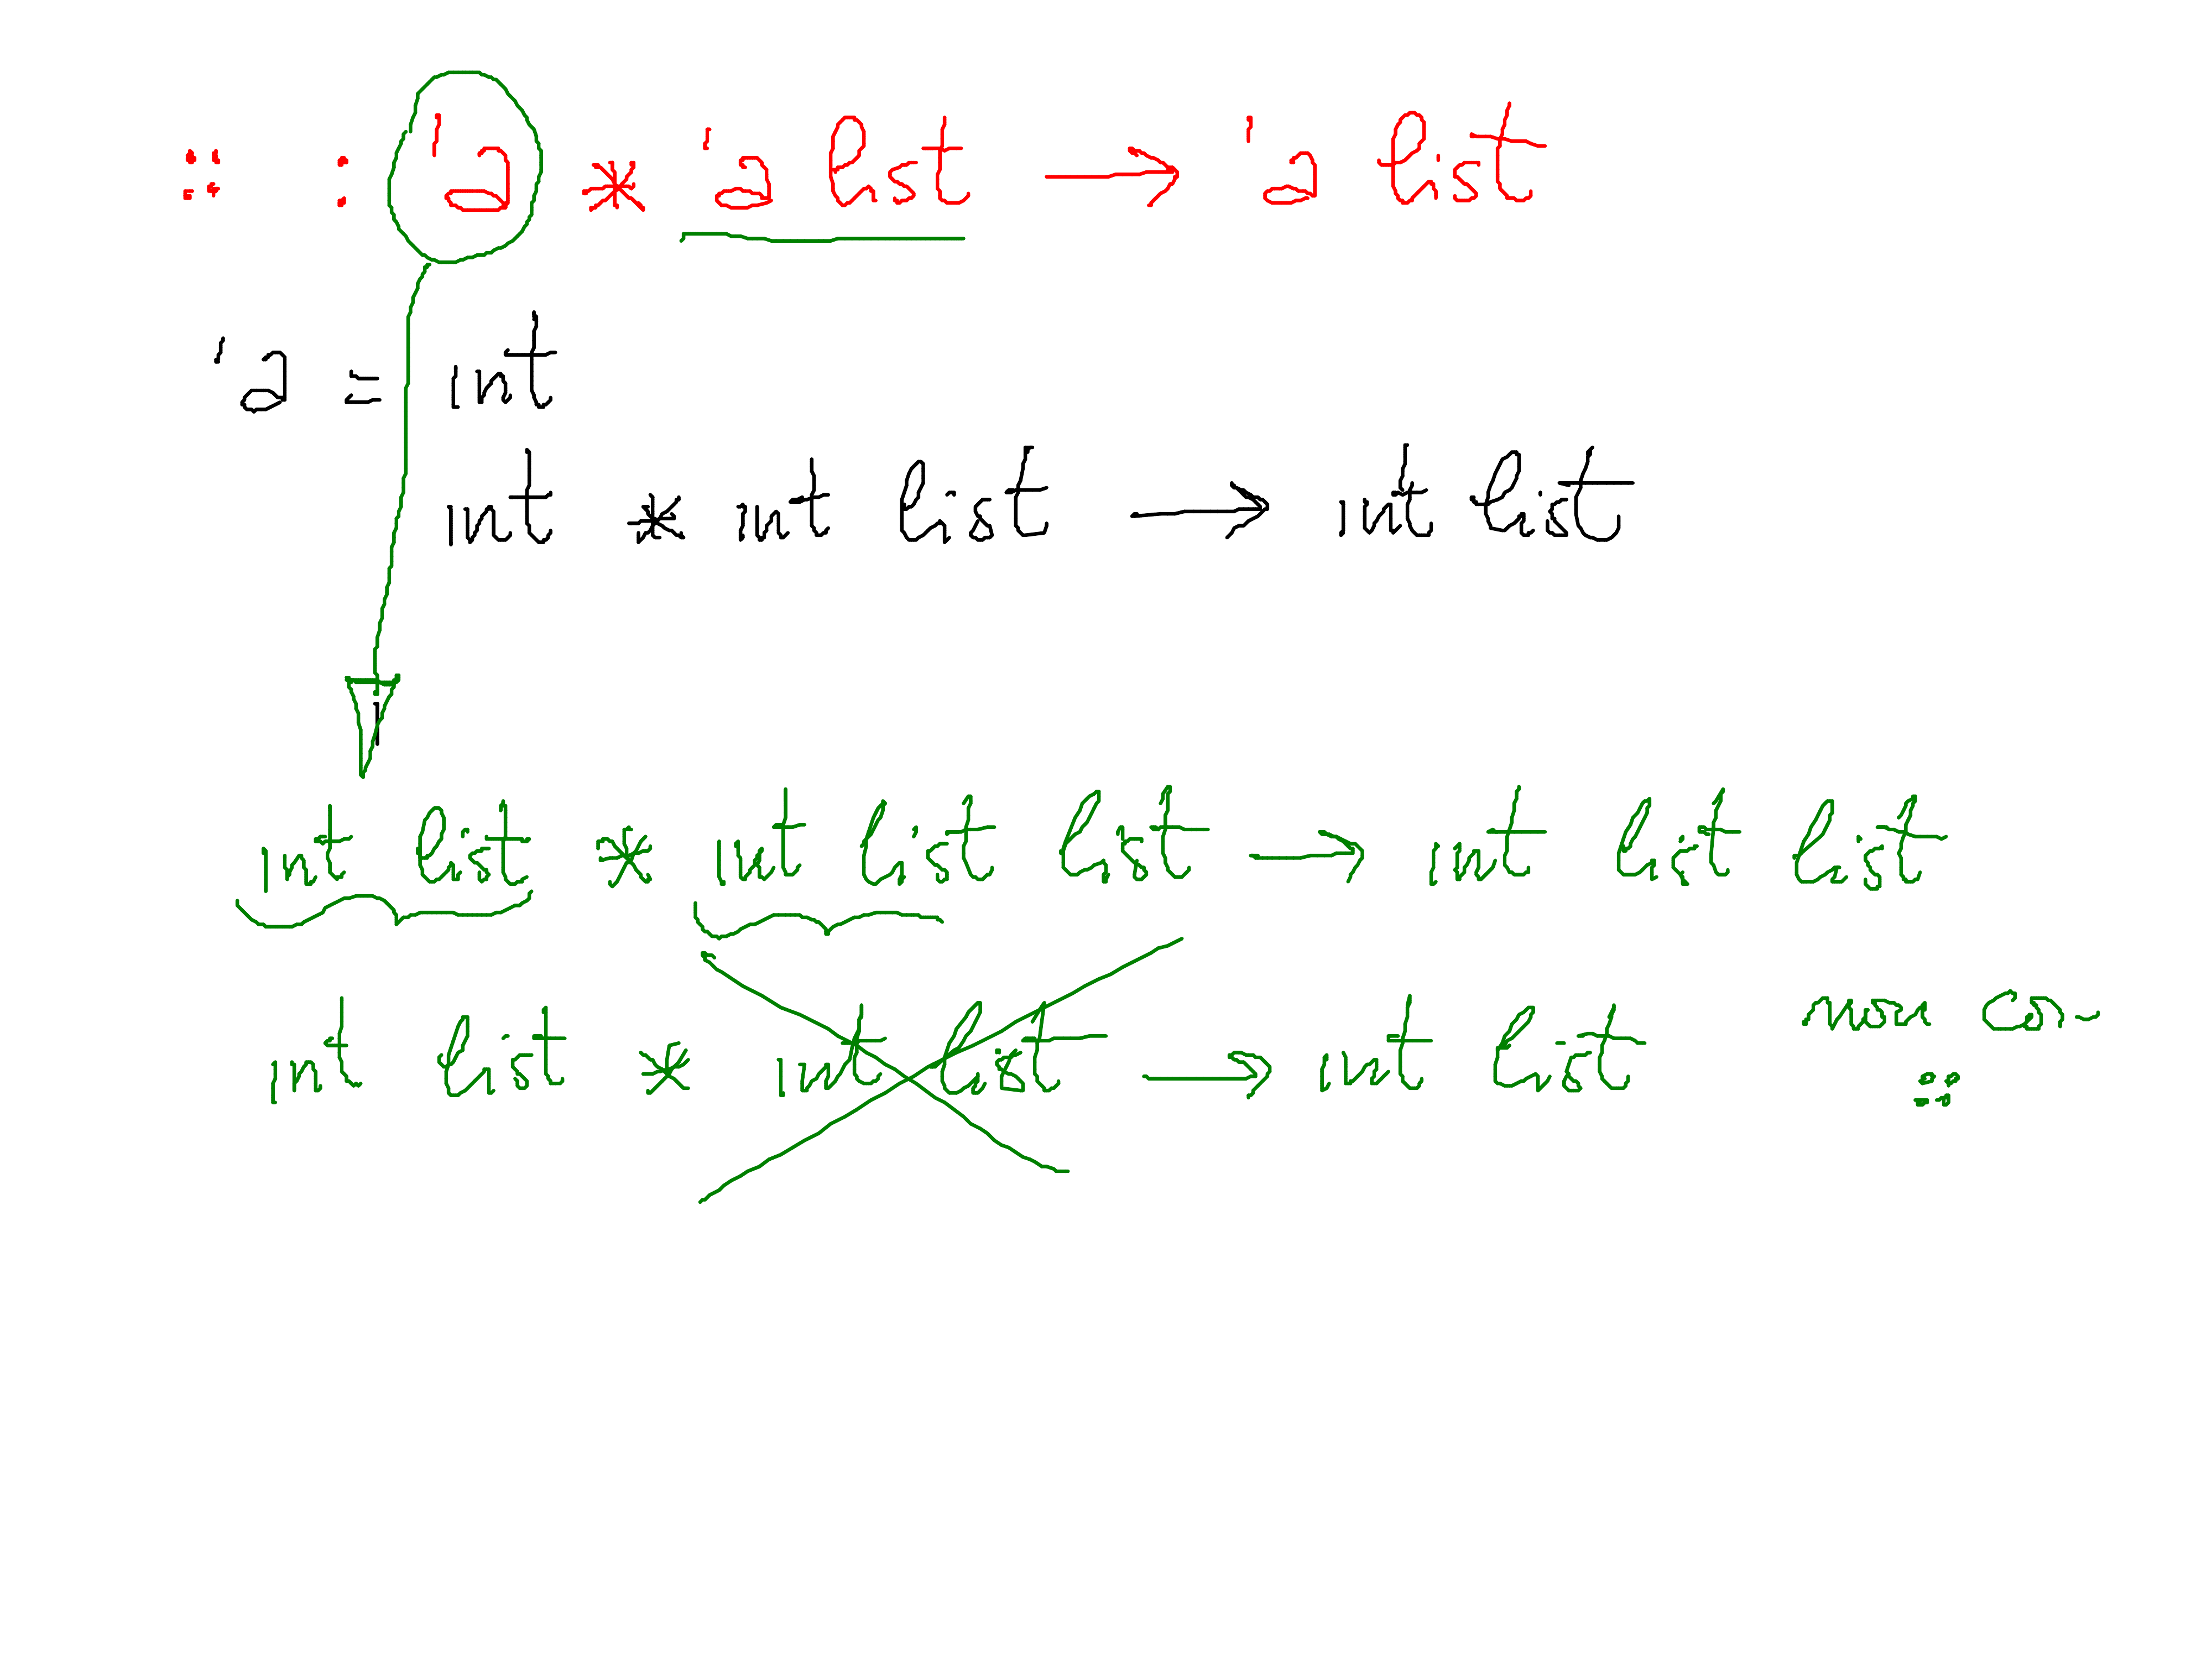 :: : 'a * 'a list → 'a list
'a = int
int * int list → int list
int list * int list list → int list list
int list * int list → int list non con
::